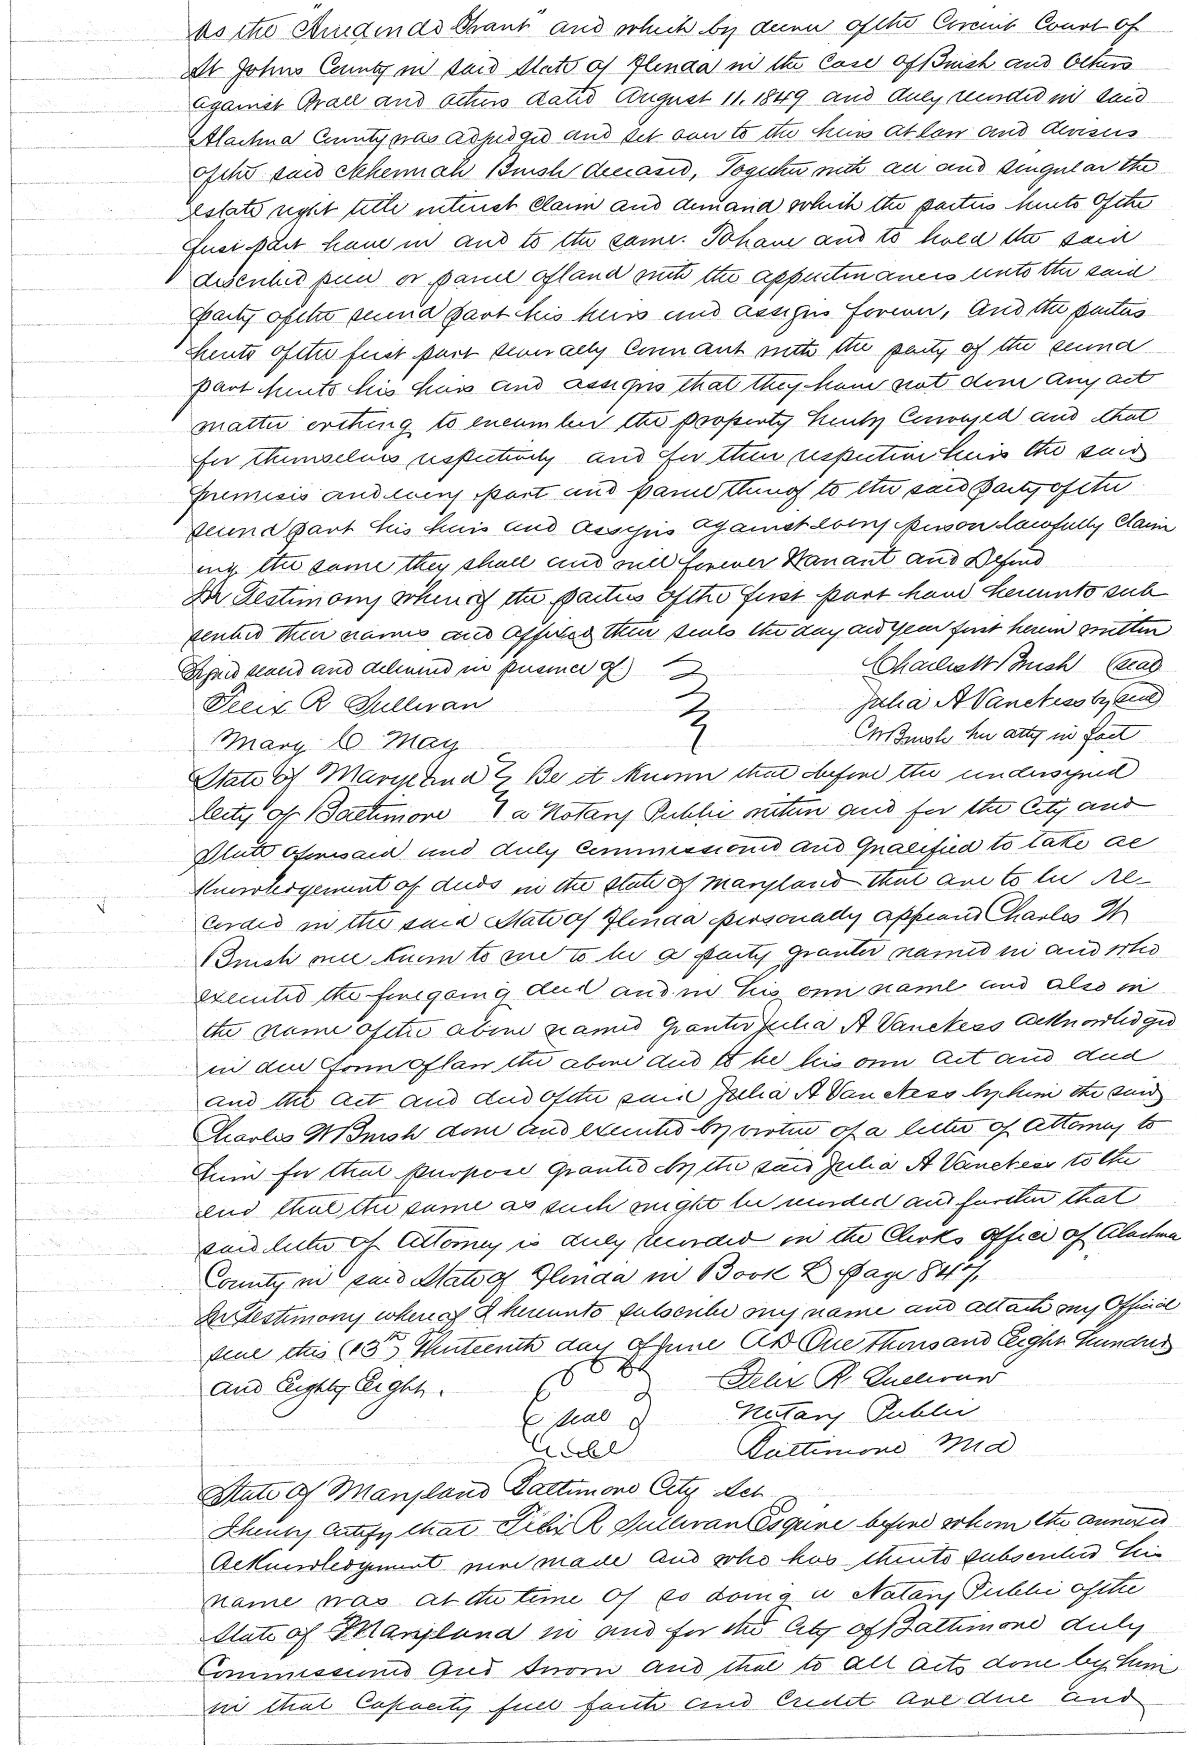 as the "Arredondo Grant" and which by decree of the Circuit Court of
St Johns County in said State of Florida in the Case of Brush and Others
against Brall and others dated August 11. 1849 and duly recorded in said
Alachua County was adjudged and set over to the heirs at law and devisees
of the said Nehemiah Brush deceased, Together with all and singular the
estate right title interest claim and demand which the parties hereto of the
first part have in and to the same. To have and to hold the said
described piece or parcel of land with the appurtenances unto the said
party of the second part his heirs and assigns forever, And the parties
hereto of the first part severally Covenant with the party of the second
part hereto his heirs and assigns that they have not done any act
matter or thing to encumber the property hereby Conveyed and that
for themselves respectively and for their respective heirs the said
premises and every part and parcel thereof to the said party of the
second part his heirs and assigns against every person lawfully Claim
ing the same they shall and will forever Warrant and Defend
In Testimony whereof the parties of the first part have hereunto sub
scribed their names and affixed their seals the day and year first herein written
Signed sealed and delivered in presence of Charles W Brush (seal
Felix R Sullivan Julia A Van Ness by (seal)
Mary C May CW Brush her atty in fact
State of Maryland Be it Known that before the undersigned
City of Baltimore a Notary Public within and for the City and
State aforesaid and duly Commissioned and Qualified to take ac
Knowledgement of deeds in the State of Maryland that are to be Re-
corded in the said State of Florida personally appeared Charles W
Brush well known to me to be a party grantor named in and who
executed the foregoing deed and in his own name and also in
the name of the above named Grantor Julia A Van Ness Acknowledged
in due form of law the above deed to be his own Act and deed
and the Act and deed of the said Julia A Van Ness by him the said
Charles W Brush done and executed by virtue of a letter of Attorney to
him for that purpose granted by the said Julia A Van Ness to the
end that the same as such might be recorded and further that
said letter of Attorney is duly recorded in the Clerks Office of Alachua
County in said State of Florida in Book page
In Testimony whereof I hereunto subscribe my name and attach my Official
seal this (13th) thirteenth day of June AD One thousand Eight hundred
and Eighty Eight. Felix R. Sullivan
(seal) Notary Public
Baltimore Md
State of Maryland Baltimore City Sct
I hereby Certify that Felix R Sullivan Esquire before whom the annexed
Acknowledgment were made and who has thereto subscribed his
name was at the time of so doing a Notary Public of the
State of Maryland in and for the City of Baltimore duly
Commissioned and sworn and that to all acts done by him
in that Capacity full faith and Credit are due and